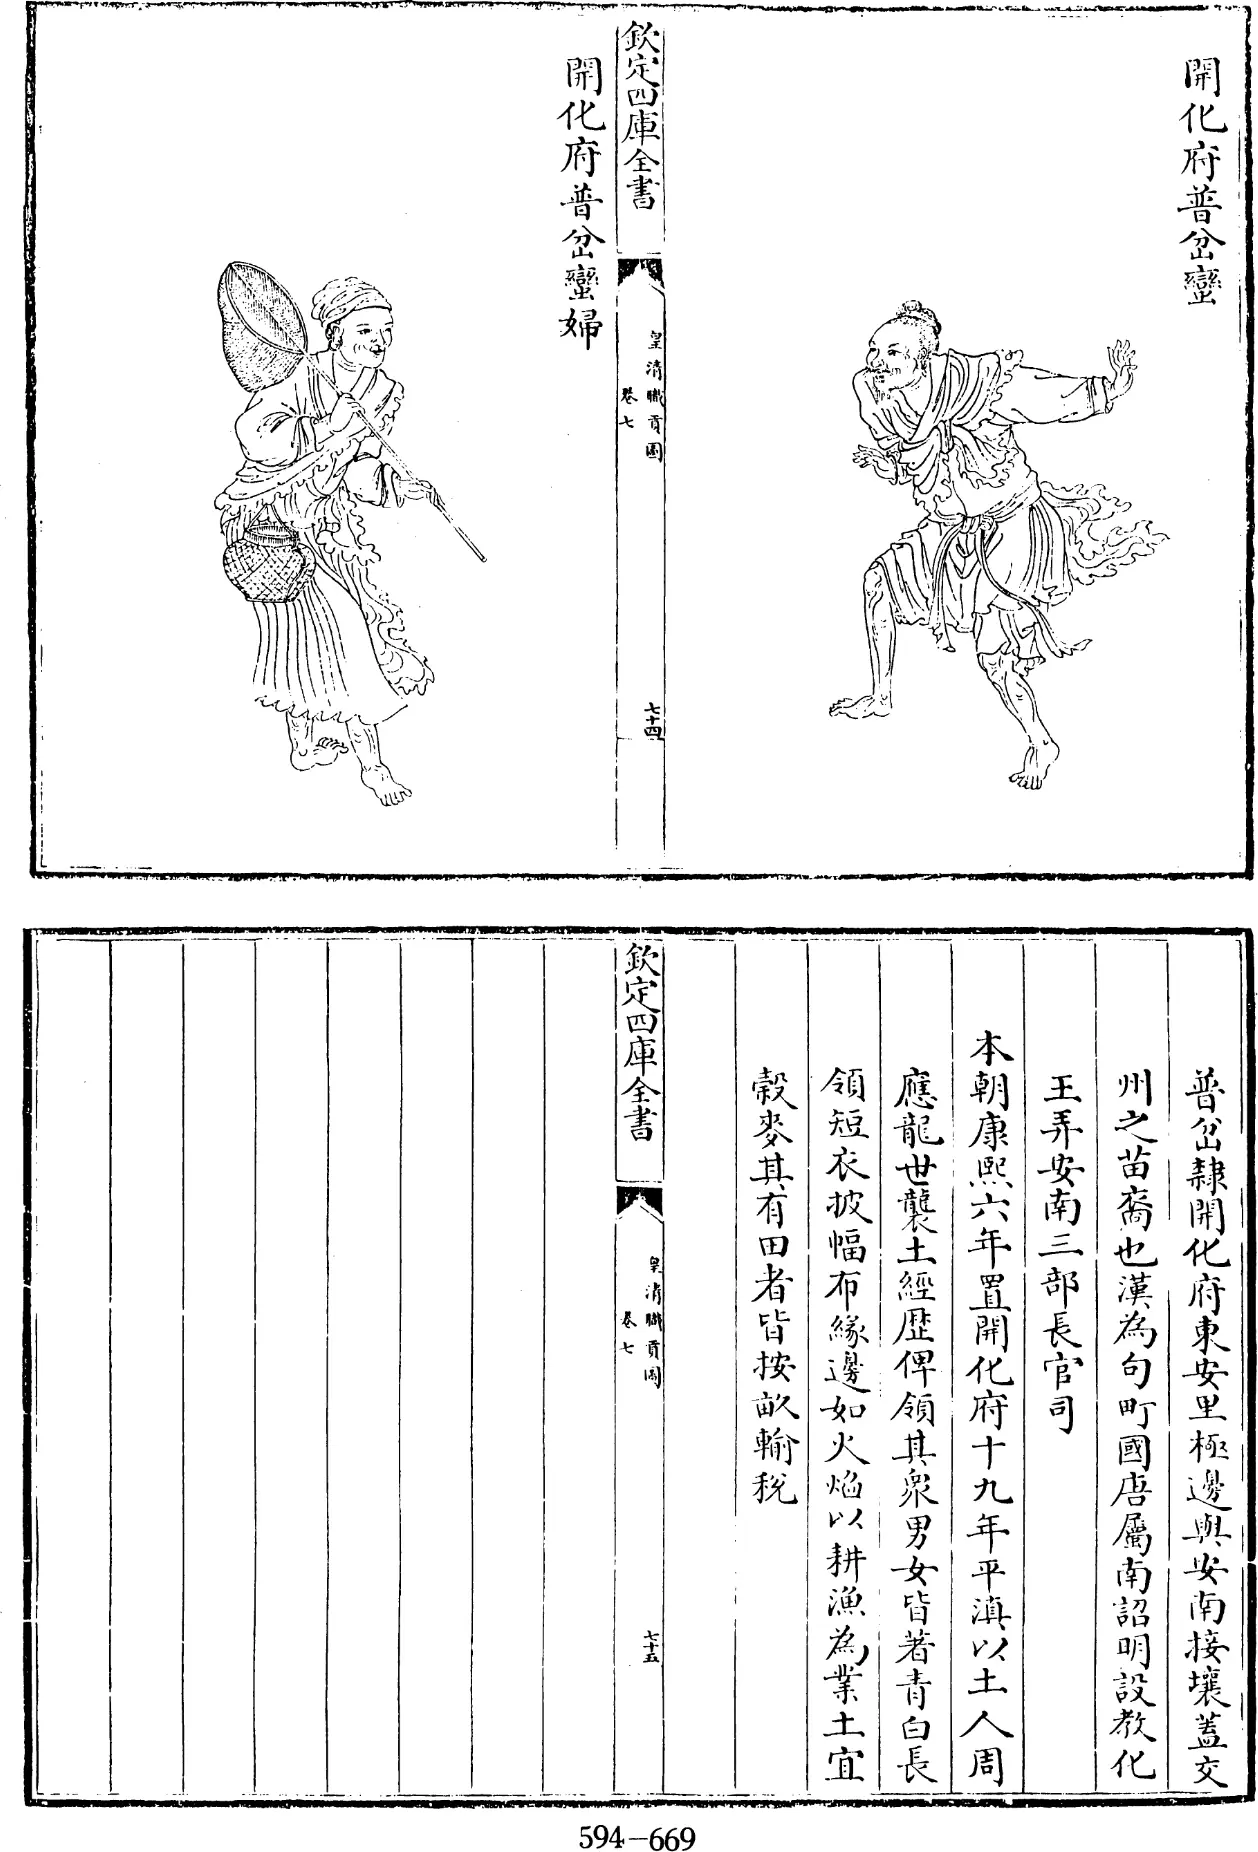 開化府普岔蠻
欽定四庫全書
皇清職貢圖
卷七
七十四
開化府普岔蠻婦
普岔隸開化府東安里極邊與安南接壤蓋交
州之苗裔也漢為句町國唐屬南詔明設教化
王弄安南三部長官司
本朝康熙六年置開化府十九年平滇以土人周
應龍世襲土經歷俾領其衆男女皆著青白長
領短衣披幅布緣邊如火焰以耕漁為業土宜
穀麥其有田者皆按畝輸稅
欽定四庫全書
皇清職貢圖
卷七
七十五
594-669